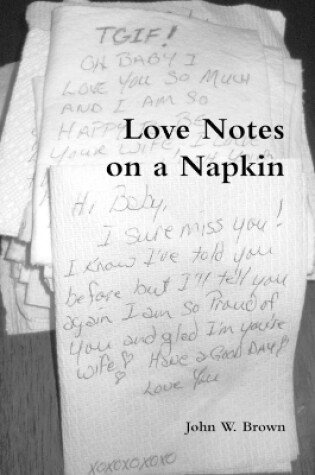 TGIF!
OH BABY I
LOVE YOU SO MUCH
AND I AM SO
HAPPY TO BE
YOUR WIFE, I LOVE
Love Notes
on a Napkin
Hi Baby,
I sure miss you!
I Know I've told you
before but I'll tell you
again I am so Proud of
you and gled I'm you're
wife! Have a Good DAY!
Love You
John W. Brown
xoxoxoxoxo